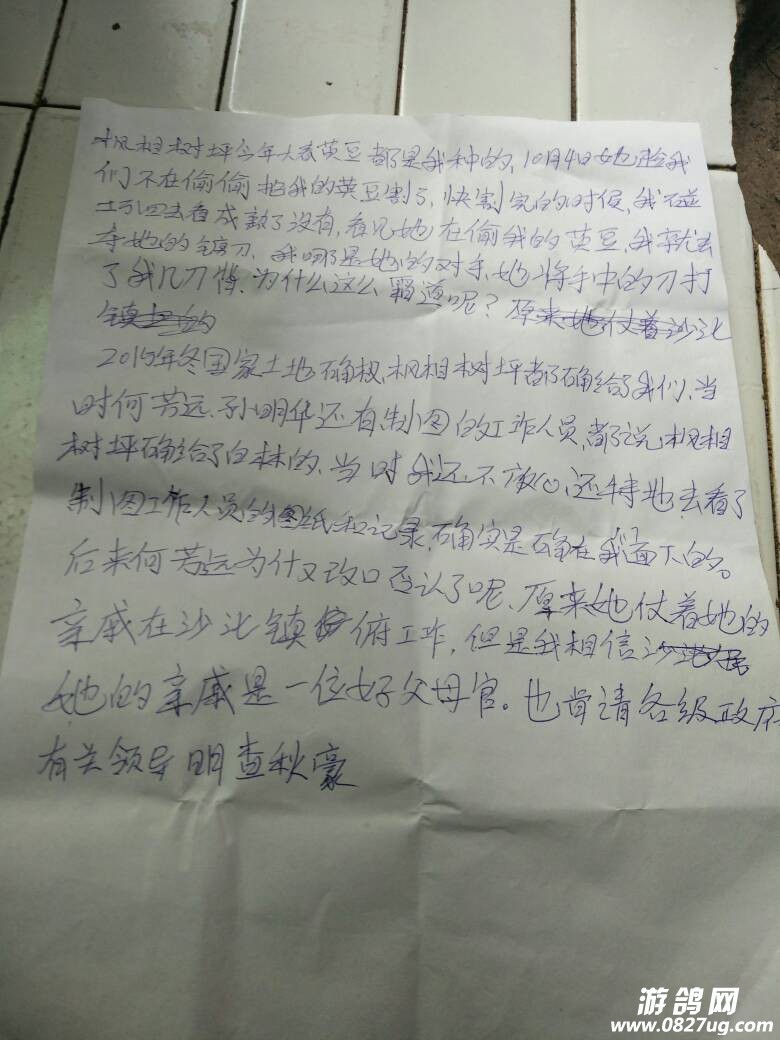 枫相树坪今年大春黄豆都是我种的，10月4日她趁我
们不在偷偷把我的黄豆割了，快割完的时侯，我
回去看成熟了没有，看见她在偷我的黄豆，我就去
夺她的镰刀，我哪是她的对手，她将手中的刀打
了我几刀背，为什么这么霸道呢？原来她仗着沙沱
镇
2015年冬国家土地确权，枫相树坪都确给了我们，当
时何芳远、孙明华还有制图的工作人员，都说枫相
树坪确给了白林的，当时我还不放心，还特地去看了
制图工作人员的图纸和记录，确实是确在我面下的。
后来何芳远为什又改口否认了呢，原来她仗着她的
亲戚在沙沱镇俯工作，但是我相信
她的亲戚是一位好父母官。也肯请各级政府
有关领导明查秋豪
游鸽网
www.0827ug.com